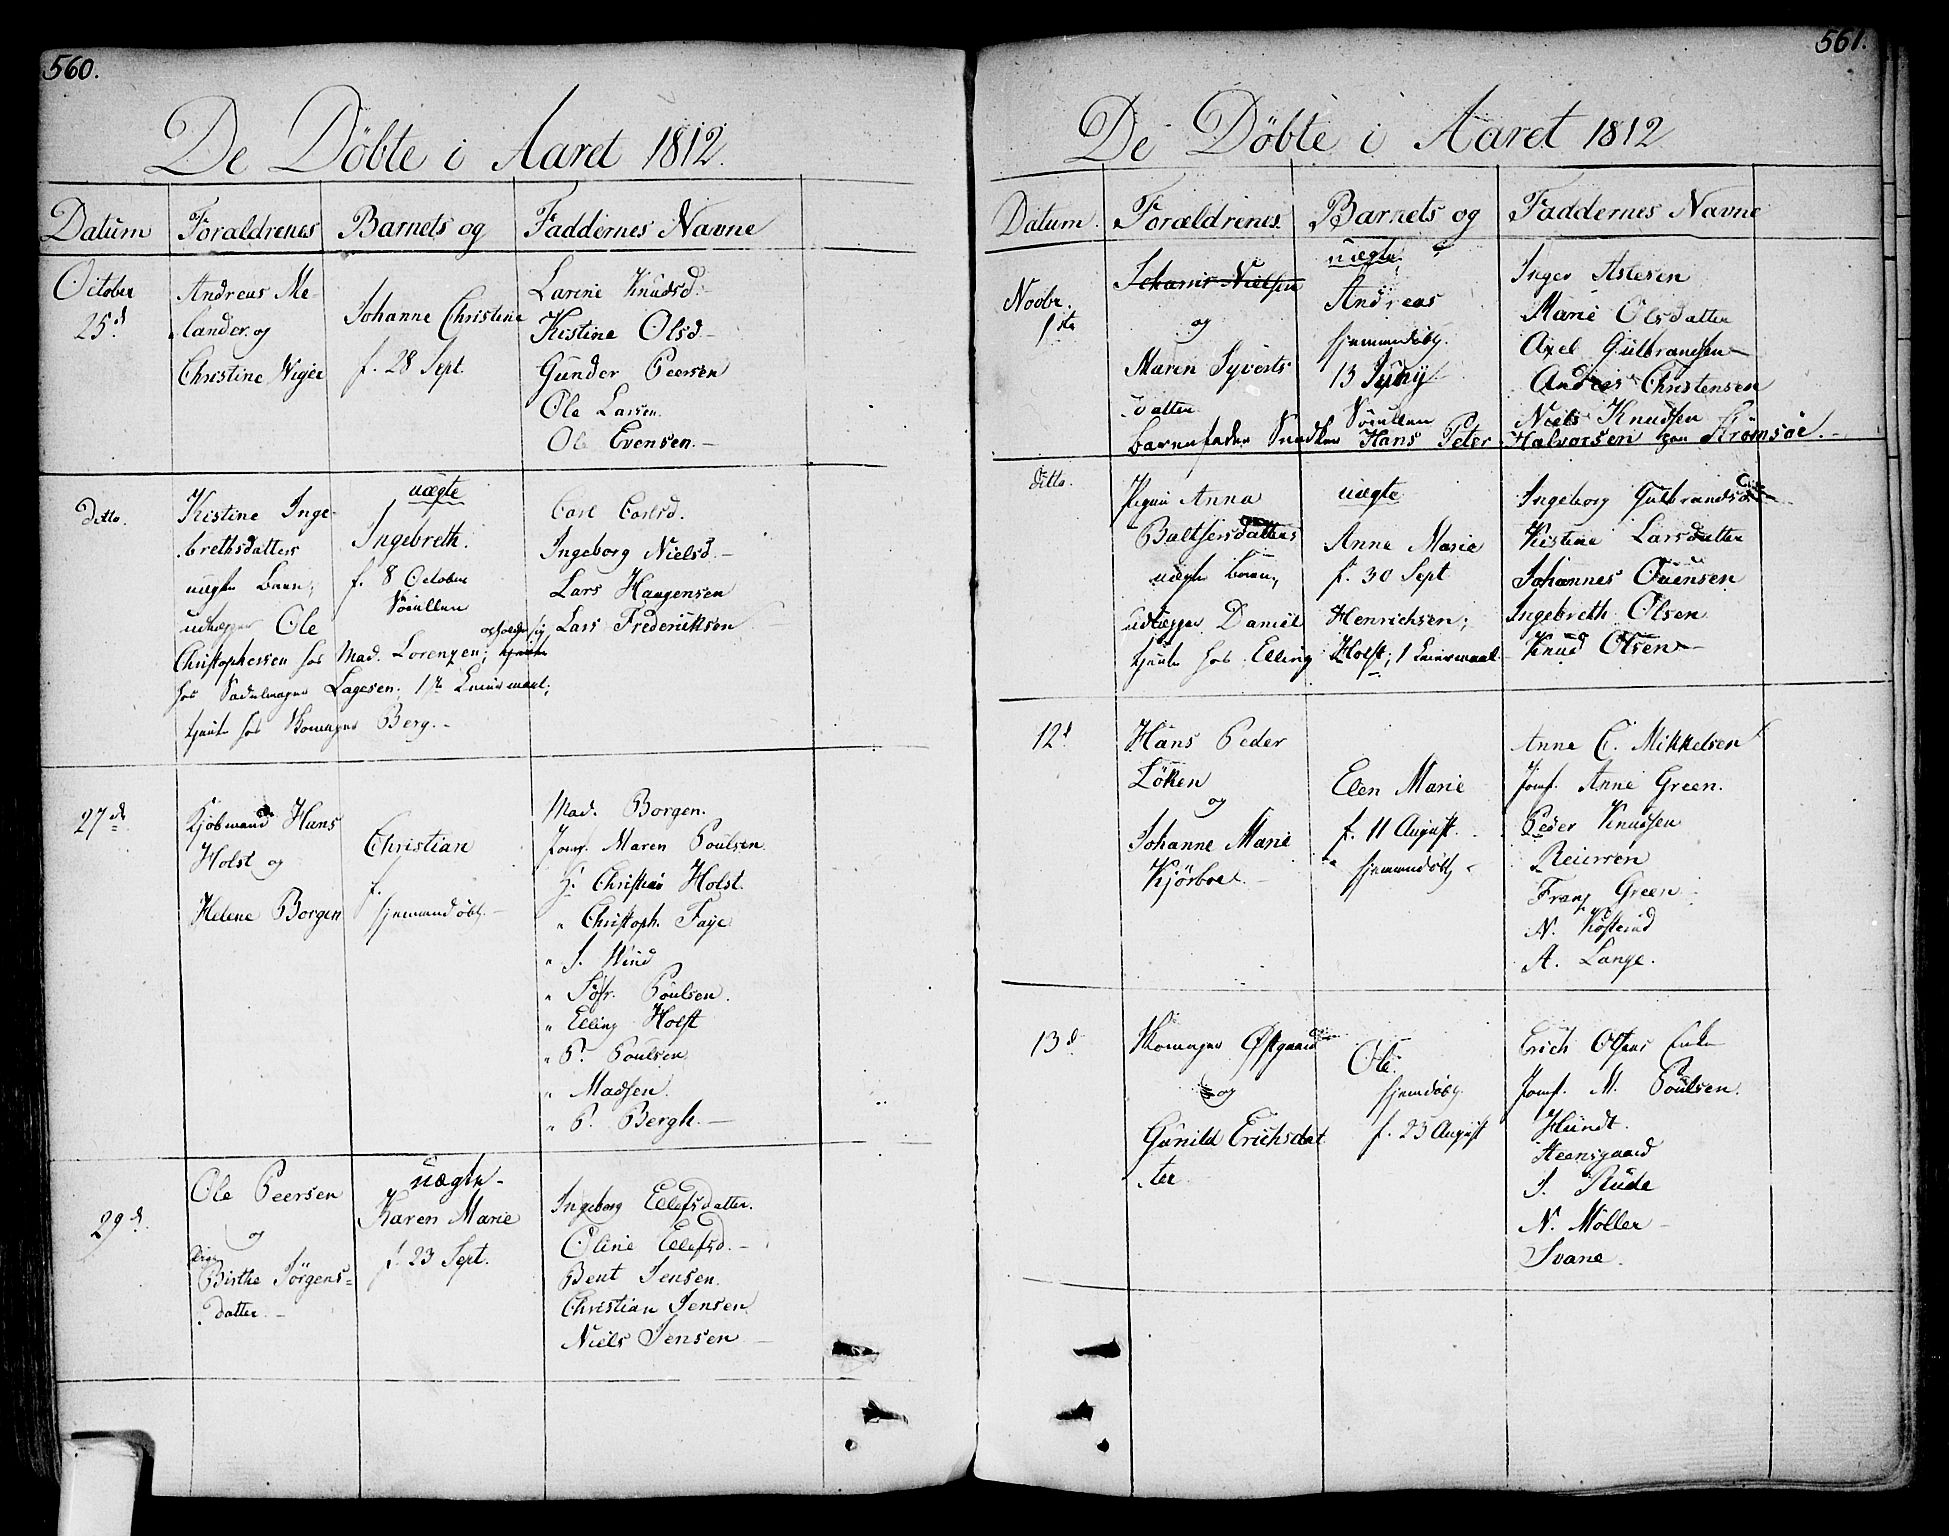 560.
De Döbte i Aaret 1812.
Datum Foraldrenes Barnets og Faddernes Navne
October
25d
Andreas Me-
lander og
Christine Niger
Johanne Christine
f. 28 Sept.
Larine Knudsd.
Kistine Olsd.
Gunder Peersen
Ole Larsen.
Ole Evensen.
Ditto.
Kistine Inge-
brethsdatters
uægte Barn;
udlægger Ole
Christophersen hos Mad. Lorenzen;
opholder sig
hos Sadelmager Lagesen; 1ste Leiermaal;
tjente hos Skomager Berg.
uægte
Ingebreth.
f. 8 October
Carl Carlsd.
Ingeborg Nielsd.
Lars Haagensen
Lars Frederiksen
27de
Kjöbmand Hans
Holst og
Helene Borgen
Christian
f.
hjemmedöbt.
Mad. Borgen.
Jomf. Maren Poulsen
H. Christian Holst.
" Christoph. Faye
" J. Wind
" Söfr. Poulsen.
" Elling Holst
" P. Poulsen
" Madsen.
" P. Bergh.
29d.
Ole Peersen
og
Birthe Jörgens-
datter.
uægte
Karen Marie
f. 23 Sept.
Ingeborg Ellefsdatter.
Oline Ellefsd.
Bent Jensen.
Christian Jensen
Niels Jensen
561.
De Döbte i Aaret 1812
Datum. Forældrenes Barnets og Faddernes Navne
Novbr.
1ste
Johannes Nielsen
og
Maren Syverts
datter
uægte
Andreas
hjemmedöbt.
13 Juny
Inger Aslesen
Marie Olsdatter
Axel Gulbrandsen
Andreas Christensen
Niels Knudsen
Barnefader Snedker Hans Peter Halvorsen paa Strömsöe.
ditto.
Pigen Anna
Balthersdatters
uægte Barn,
udlægger Daniel Henrichsen;
tjente hos Elling Holst; 1 Leiermaal
uægte
Anne Marie
f. 30 Sept
Ingeborg Gulbrandsd
Kistine Larsdatter
Johannes Evensen
Ingebreth Olsen
Knud Olsen
12d
Hans Peder
Löken
og
Johanne Marie
Kjörboe.
Elen Marie
f. 11 August.
hjemmedöbt
Anne C. Mikkelsen
Jomf. Anne Green.
Peder Knudsen
Reiersen
Franz Green
N. Kösterud
A. Lange.
13d.
Skomager Østgaard
og
Gunild Erichsdat
ter
Ole.
hjemdöbt.
f. 23 August
Erich Olsens Enke
Jomf. M. Poulsen.
Hundt.
Steensgaard
J. Rude
N. Möller
Svane.